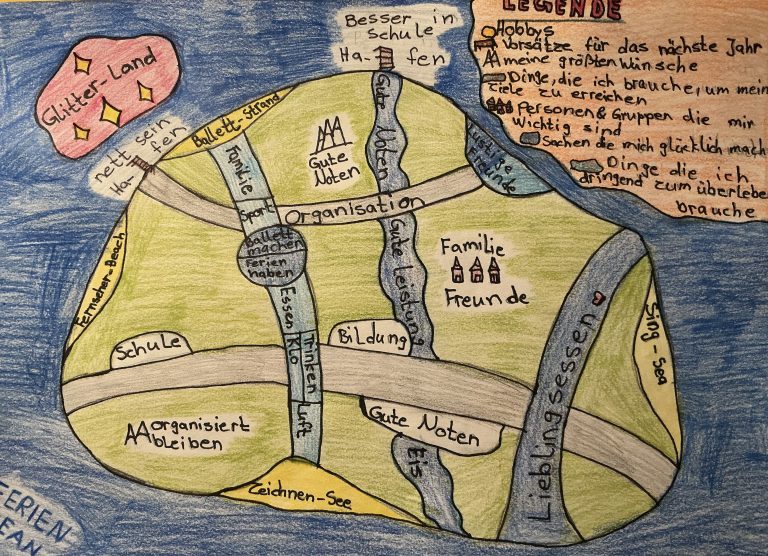 LEGENDE
Hobbys
Vorsätze für das nächste Jahr
meine größten Wünsche
Dinge, die ich brauche, um mein
ziele zu erreichen
Personen & Gruppen die mir
wichtig sind
Sachen die mich glücklich mach
Dinge die ich
dringend zum überlebe
brauche
Besser in
schule
Ha-fen
Glitter-Land
nett sein
Ha-fen
Ballett-Strand
Familie
Sport
Ballett
machen
Ferien
haben
Essen
Klo
Trinken
Luft
Gute
Noten
Gute Noten
Gute Leistung
Organisation
Lustige
Freunde
Familie
Freunde
Fernseher-Beach
Sing-Sea
Schule
Bildung
Gute Noten
Eis
Lieblingsessen
organisiert
bleiben
Zeichnen-See
FERIEN
EAN